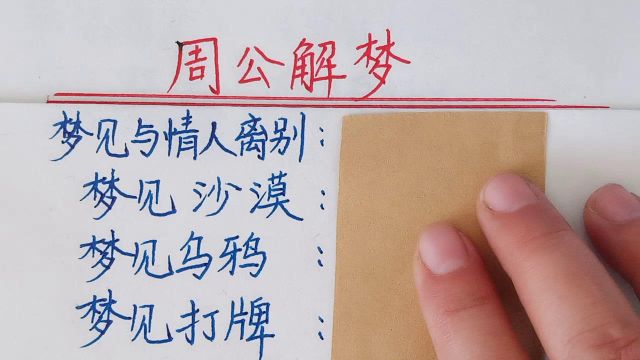 周公解梦
梦见与情人离别：
梦见沙漠：
梦见乌鸦：
梦见打牌：